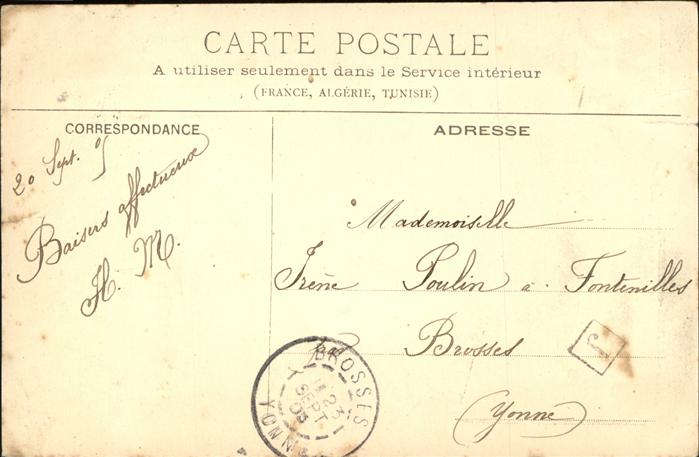 CARTE POSTALE
A utiliser seulement dans le Service intérieur
(FRANCE, ALGÉRIE, TUNISIE)
CORRESPONDANCE
20 Sept. 05
Baisers affectueux
H. M.
ADRESSE
Mademoiselle
Irène Poulin à Fontenilles
par Brosses
(Yonne)
BROSSES
23
SEPT
05
YONNE